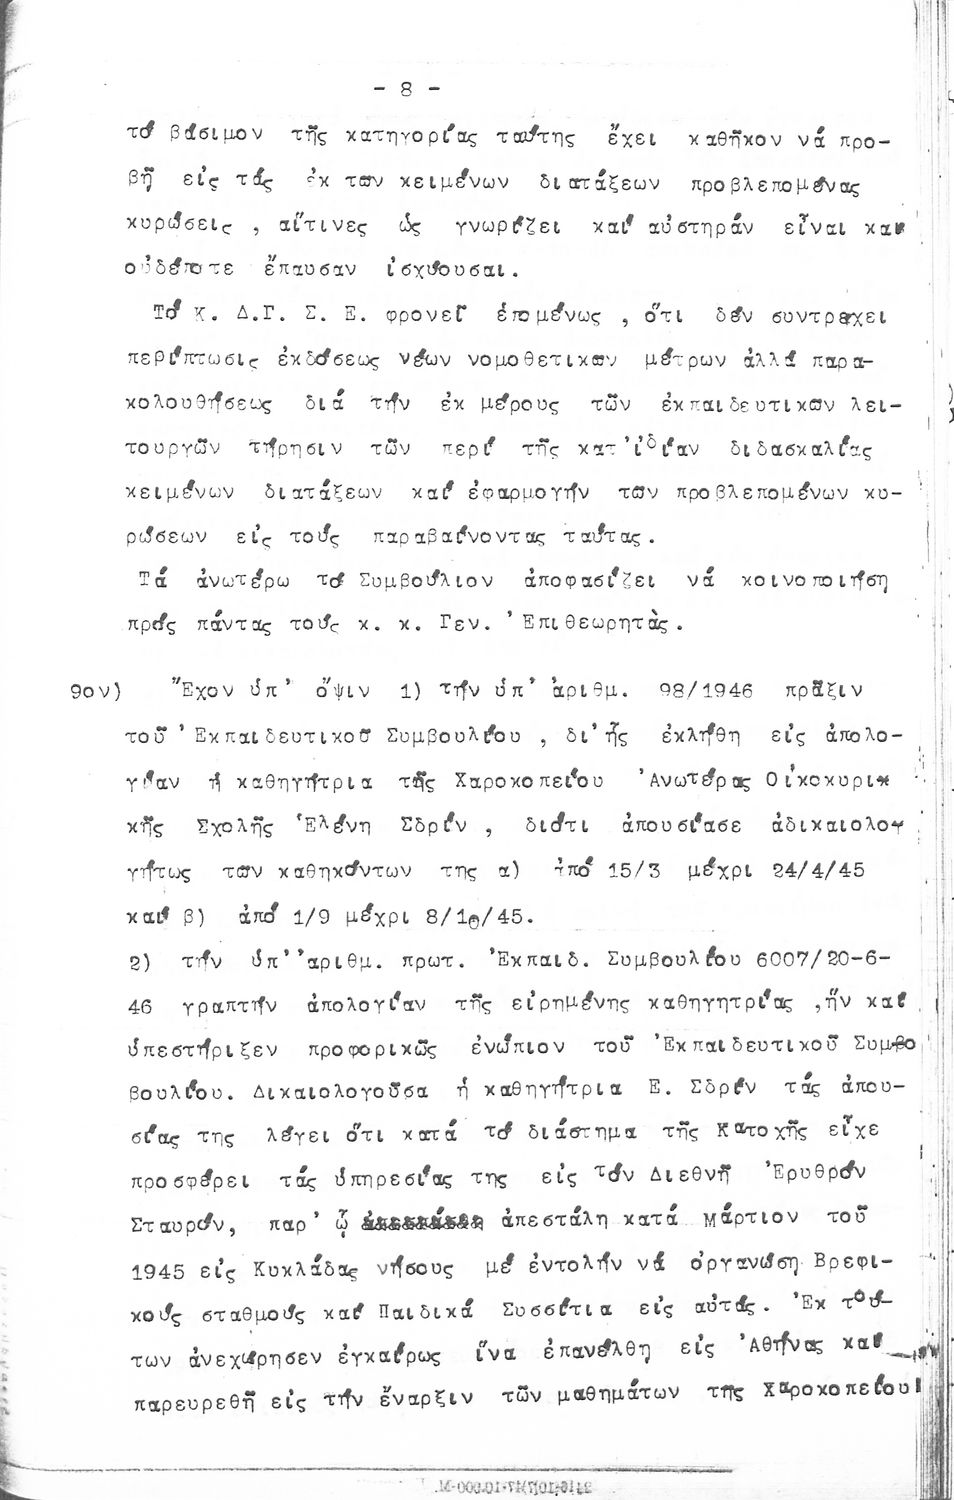 - 8 -
τό βάσιμον τῆς κατηγορίας ταύτης ἔχει καθῆκον νά προ-
βῆ εἰς τάς ἐκ των κειμένων διατάξεων προβλεπομένας
κυρώσεις , αἵτινες ὡς γνωρίζει καί αὐστηράν εἶναι και
οὐδέποτε ἔπαυσαν ἰσχύουσαι.
Τό Κ. Δ.Γ. Σ. Ε. φρονεῖ ἑπομένως , ὅτι δέν συντρεχει
περίπτωσις ἐκδόσεως νέων νομοθετικων μέτρων ἀλλά παρα-
κολουθήσεως διά τήν ἐκ μέρους τῶν ἐκπαιδευτικων λει-
τουργῶν τήρησιν τῶν περί τῆς κατ'ἰδίαν διδασκαλίας
κειμένων διατάξεων καί ἐφαρμογήν των προβλεπομένων κυ-
ρώσεων εἰς τούς παραβαίνοντας ταύτας.
Τά ἀνωτέρω τό Συμβούλιον ἀποφασίζει νά κοινοποιήση
πρός πάντας τούς κ. κ. Γεν. Ἐπιθεωρητὰς.
9ον) Ἔχον ὑπ' ὄψιν 1) τήν ὑπ' ἀριθμ. 98/1946 πρᾶξιν
τοῦ Ἐκπαιδευτικοῦ Συμβουλίου , δι'ἧς ἐκλήθη εἰς ἀπολο-
γίαν ἡ καθηγήτρια τῆς Χαροκοπείου Ἀνωτέρας Οἰκοκυρικ
κῆς Σχολῆς Ἑλένη Σδρίν , διότι ἀπουσίασε ἀδικαιολο-
γήτως των καθηκόντων της α) ἀπό 15/3 μέχρι 24/4/45
καί β) ἀπό 1/9 μέχρι 8/10/45.
2) τήν ὑπ''αριθμ. πρωτ. Ἐκπαιδ. Συμβουλίου 6007/20-6-
46 γραπτήν ἀπολογίαν τῆς εἰρημένης καθηγητρίας ,ἥν καί
ὑπεστήριξεν προφορικῶς ἐνώπιον τοῦ Ἐκπαιδευτικοῦ Συμβο
βουλίου. Δικαιολογοῦσα ἡ καθηγήτρια Ε. Σδρίν τάς ἀπου-
σίας της λέγει ὅτι κατά τό διάστημα τῆς Κατοχῆς εἶχε
προσφέρει τάς ὑπηρεσίας της εἰς τόν Διεθνῆ Ἐρυθρόν
Σταυρόν, παρ' ᾧ ἀπεστάλη κατά Μάρτιον τοῦ
1945 εἰς Κυκλάδας νήσους μέ ἐντολήν νά ὀργανώση Βρεφι-
κούς σταθμούς καί Παιδικά Συσσίτια εἰς αὐτάς. Ἐκ τού-
των ἀνεχώρησεν ἐγκαίρως ἵνα ἐπανέλθη εἰς Ἀθήνας καί
παρευρεθῆ εἰς τήν ἔναρξιν τῶν μαθημάτων της Χαροκοπείου